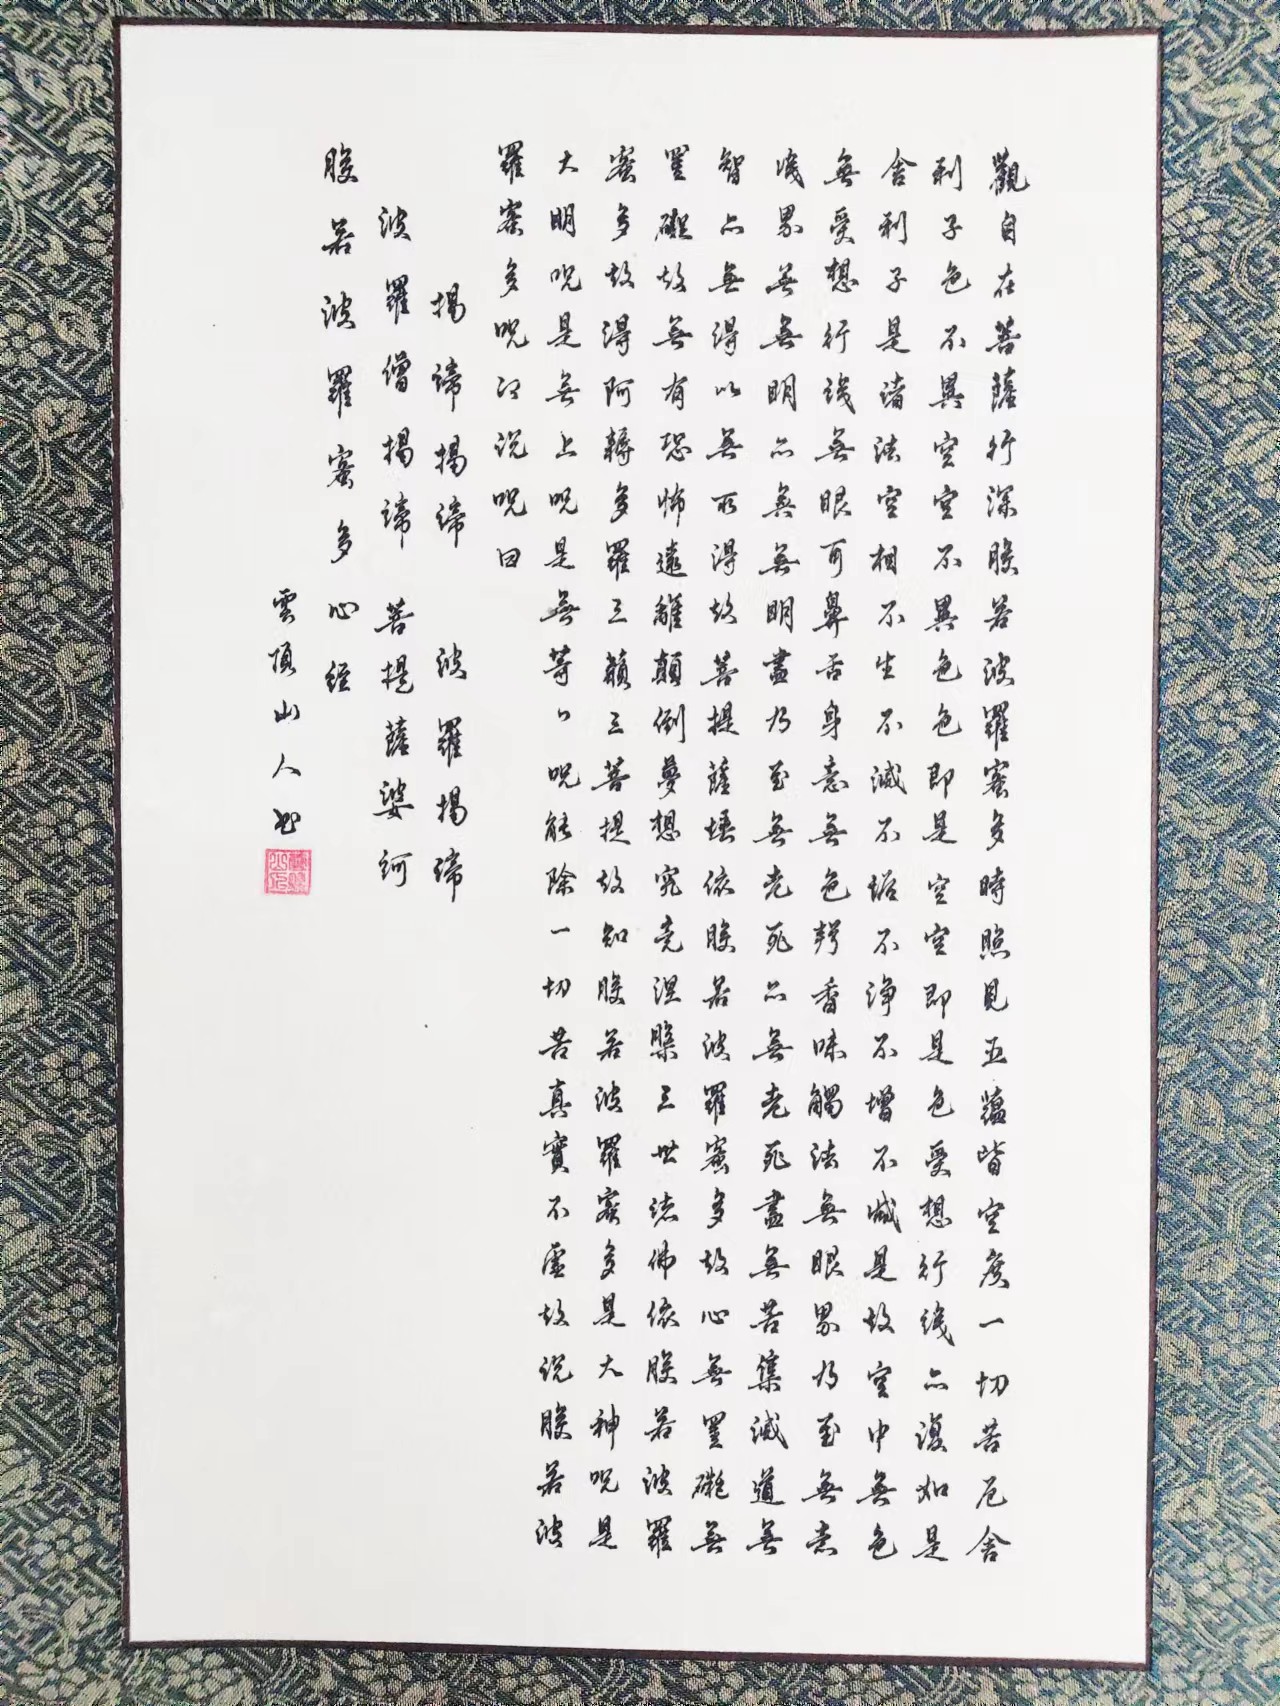 觀自在菩薩行深般若波羅蜜多時照見五蘊皆空度一切苦厄舍
利子色不異空空不異色色即是空空即是色受想行識亦復如是
舍利子是諸法空相不生不滅不垢不淨不增不減是故空中無色
無受想行識無眼耳鼻舌身意無色聲香味觸法無眼界乃至無意
識界無無明亦無無明盡乃至無老死亦無老死盡無苦集滅道無
智亦無得以無所得故菩提薩埵依般若波羅蜜多故心無罣礙無
罣礙故無有恐怖遠離顛倒夢想究竟涅槃三世諸佛依般若波羅
蜜多故得阿耨多羅三藐三菩提故知般若波羅蜜多是大神呪是
大明呪是無上呪是無等々呪能除一切苦真實不虛故說般若波
羅蜜多呪即說呪曰
揭諦揭諦 波羅揭諦
波羅僧揭諦 菩提薩婆訶
般若波羅蜜多心經
雲頂山人書